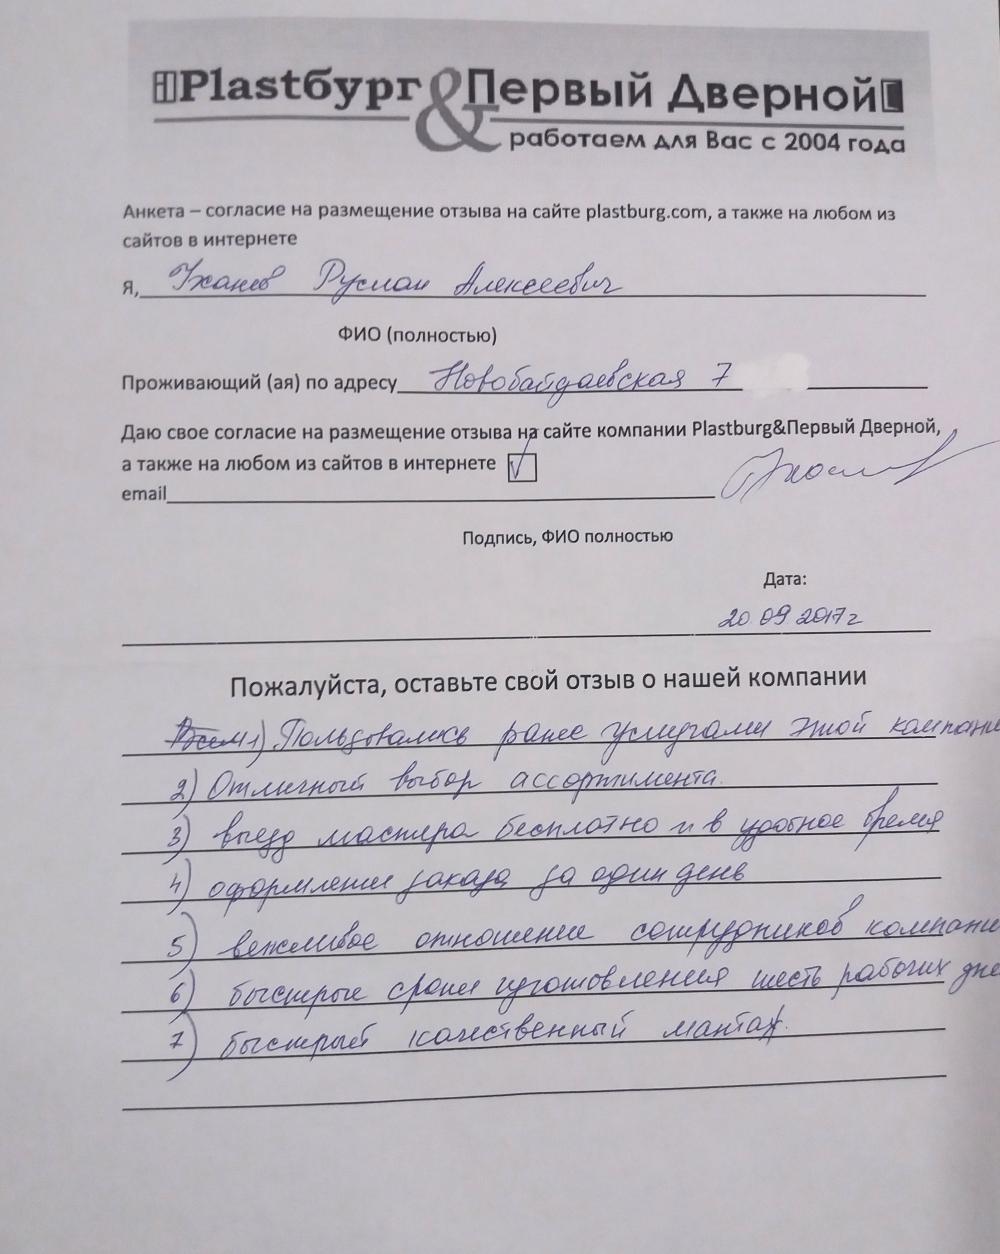 Plastбург & Первый Дверной
работаем для Вас с 2004 года
Анкета – согласие на размещение отзыва на сайте plastburg.com, а также на любом из
сайтов в интернете
Я, Уханев Руслан Алексеевич
ФИО (полностью)
Проживающий (ая) по адресу Новобайдаевская 7
Даю свое согласие на размещение отзыва на сайте компании Plastburg&Первый Дверной,
а также на любом из сайтов в интернете
email
Подпись, ФИО полностью
Дата:
20.09.2017г
Пожалуйста, оставьте свой отзыв о нашей компании
1) Пользовались ранее услугами этой компани
2) Отличный выбор ассортимента.
3) выезд мастера бесплатно и в удобное время
4) оформление заказа за один день
5) вежливое отношение сотрудников компани
6) быстрые сроки изготовления шесть рабочих дне
7) быстрый качественный мантаж.